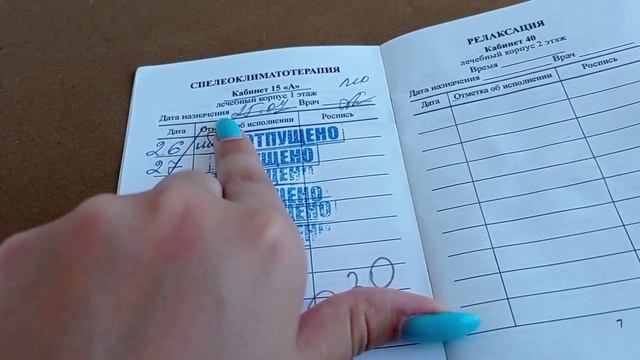 СПЕЛЕОКЛИМАТОТЕРАПИЯ
Кабинет 15 «А»
лечебный корпус 1 этаж
Дата назначения 25.04 Врач
Дата об исполнении Роспись
26 ОТПУЩЕНО
27
20
РЕЛАКСАЦИЯ
Кабинет 40
лечебный корпус 2 этаж
Время Врач
Дата назначения
Дата Отметка об исполнении Роспись
7